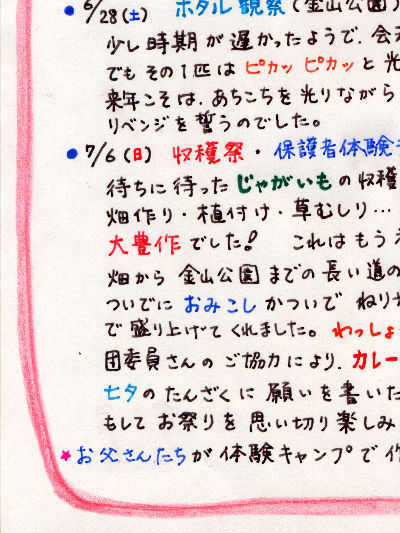 6/28(土) ホタル観察(金山公園)
少し時期が遅かったようで、会
でもその1匹は ピカッ ピカッ と光
来年こそは、あちこちを光りながら
リベンジを誓うのでした。
7/6(日) 収穫祭・保護者体験
待ちに待った じゃがいも の収穫
畑作り・植付け・草むしり…
大豊作 でした! これはもう
畑から 金山公園 までの長い道の
ついでに おみこし かついで ねり
で盛り上げて くれました。わっしょ
団委員さんの ご協力により、カレー
七夕 の たんざくに 願いを書いた
もして お祭りを 思い切り楽しみ
★お父さんたち が 体験キャンプで作